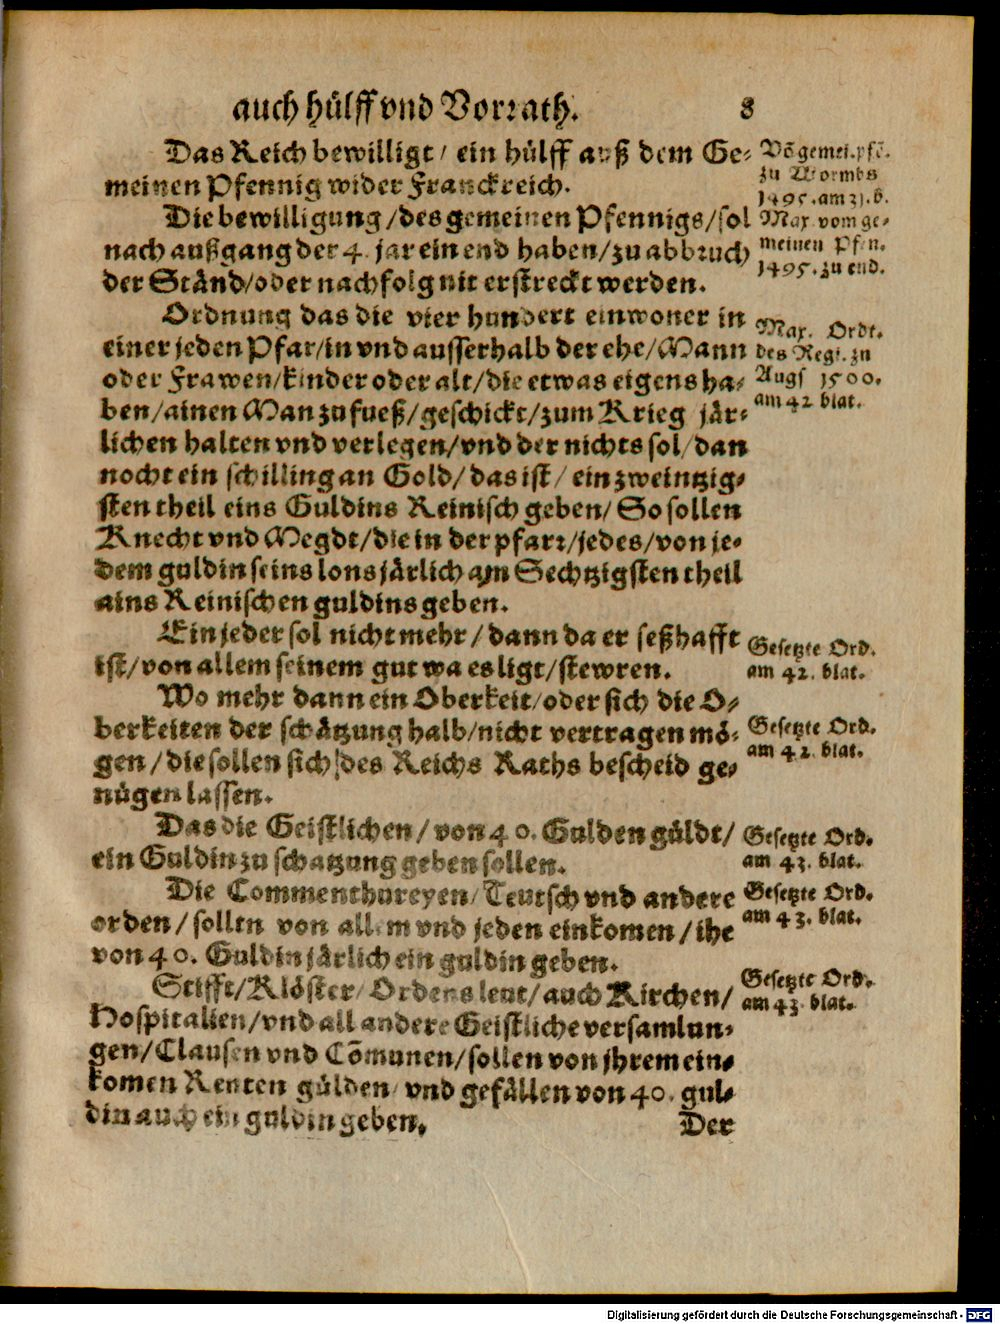 auch hülff vnd Vorrath. 8
Das Reich bewilligt / ein hülff auß dem Ge-
meinen Pfennig wider Franckreich.
Võ gemei. pfẽ.
zu Wormbs
1495. am 31. b.
Die bewilligung / des gemeinen Pfennigs / sol
nach außgang der 4. jar ein end haben / zu abbruch
der Ständ / oder nachfolg nit erstreckt werden.
Max. vom ge-
meinen Pfen.
1495. zu end.
Ordnung das die vier hundert einwoner in
einer jeden Pfar / in vnd ausserhalb der ehe / Mann
oder Frawen / kinder oder alt / die etwas eigens ha-
ben / ainen Man zu fueß / geschickt / zum Krieg jär-
lichen halten vnd verlegen / vnd der nichts sol / dan
nocht ein schilling an Gold / das ist / ein zweintzig-
sten theil eins Guldins Reinisch geben / So sollen
Knecht vnd Megdt / die in der pfarr / jedes / von je-
dem guldin seins lons järlich ain Sechtzigsten theil
ains Reinischen guldins geben.
Max. Ordt.
des Regi. zu
Augs 1500.
am 42 blat.
Ein jeder sol nicht mehr / dann da er seßhafft
ist / von allem seinem gut wa es ligt / stewren.
Gesetzte Ord.
am 42. blat.
Wo mehr dann ein Oberkeit / oder sich die O-
berkeiten der schätzung halb / nicht vertragen mö-
gen / die sollen sich des Reichs Raths bescheid ge-
nügen lassen.
Gesetzte Ord.
am 42. blat.
Das die Geistlichen / von 40. Gulden güldt /
ein Guldin zu schatzung geben sollen.
Gesetzte Ord.
am 43. blat.
Die Commenthureyen / Teutsch vnd andere
orden / sollen von allem vnd jeden einkomen / ihe
von 40. Guldin järlich ein guldin geben.
Gesetzte Ord.
am 43. blat.
Stifft / Klöster / Ordens leut / auch Kirchen /
Hospitalien / vnd all andere Geistliche versamlun-
gen / Clausen vnd Cõmunen / sollen von jhrem ein-
komen Renten gülden / vnd gefällen von 40. gul-
din auch ein guldin geben.
Gesetzte Ord.
am 43 blat.
Der
Digitalisierung gefördert durch die Deutsche Forschungsgemeinschaft - DFG